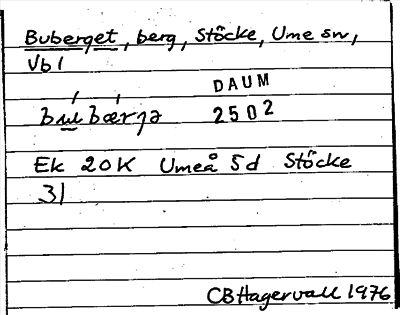 Buberget, berg, Stöcke, Ume sn,
Vbl
DAUM
bu̲bærjə 2502
Ek 20K Umeå 5d Stöcke
31
CBHagervall 1976